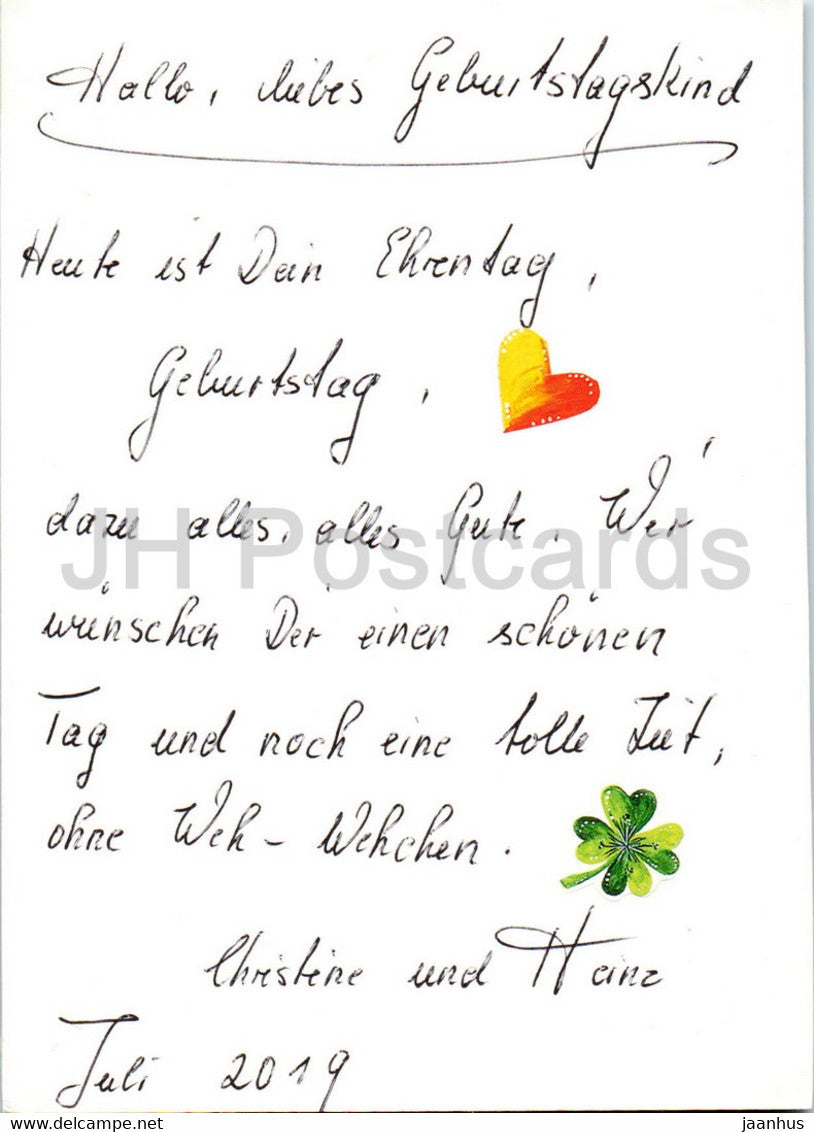 Hallo, liebes Geburtstagskind
Heute ist Dein Ehrentag,
Geburtstag,
dazu alles, alles Gute. Wir
JH Postcards
wünschen Dir einen schönen
Tag und noch eine tolle Zeit,
ohne Weh-Wehchen.
Christine und Heinz
Juli 2019
jaanhus